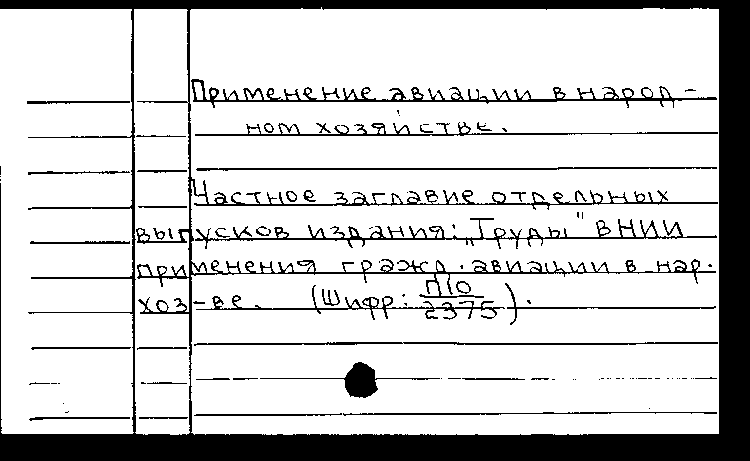 Применение авиации в народ-
ном хозяйстве.
Частное заглавие отдельных
выпусков издания: „Труды" ВНИИ
применения гражд. авиации в нар.
хоз-ве. (Шифр: П10/2375).